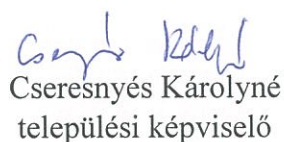 Cseresnyés Károlyné
települési képviselő